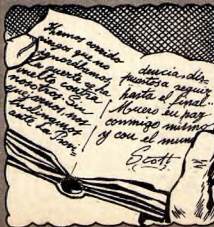 Hemos corrido
riesgos que no
desconocíamos.
La suerte y la
vuelta contra
nosotros. Sin
quejarnos, nos
inclinamos
ante la Provi
dencia dis
puestos a seguir
hasta el final.
Muero en paz
conmigo mismo
y con el mundo
Scott